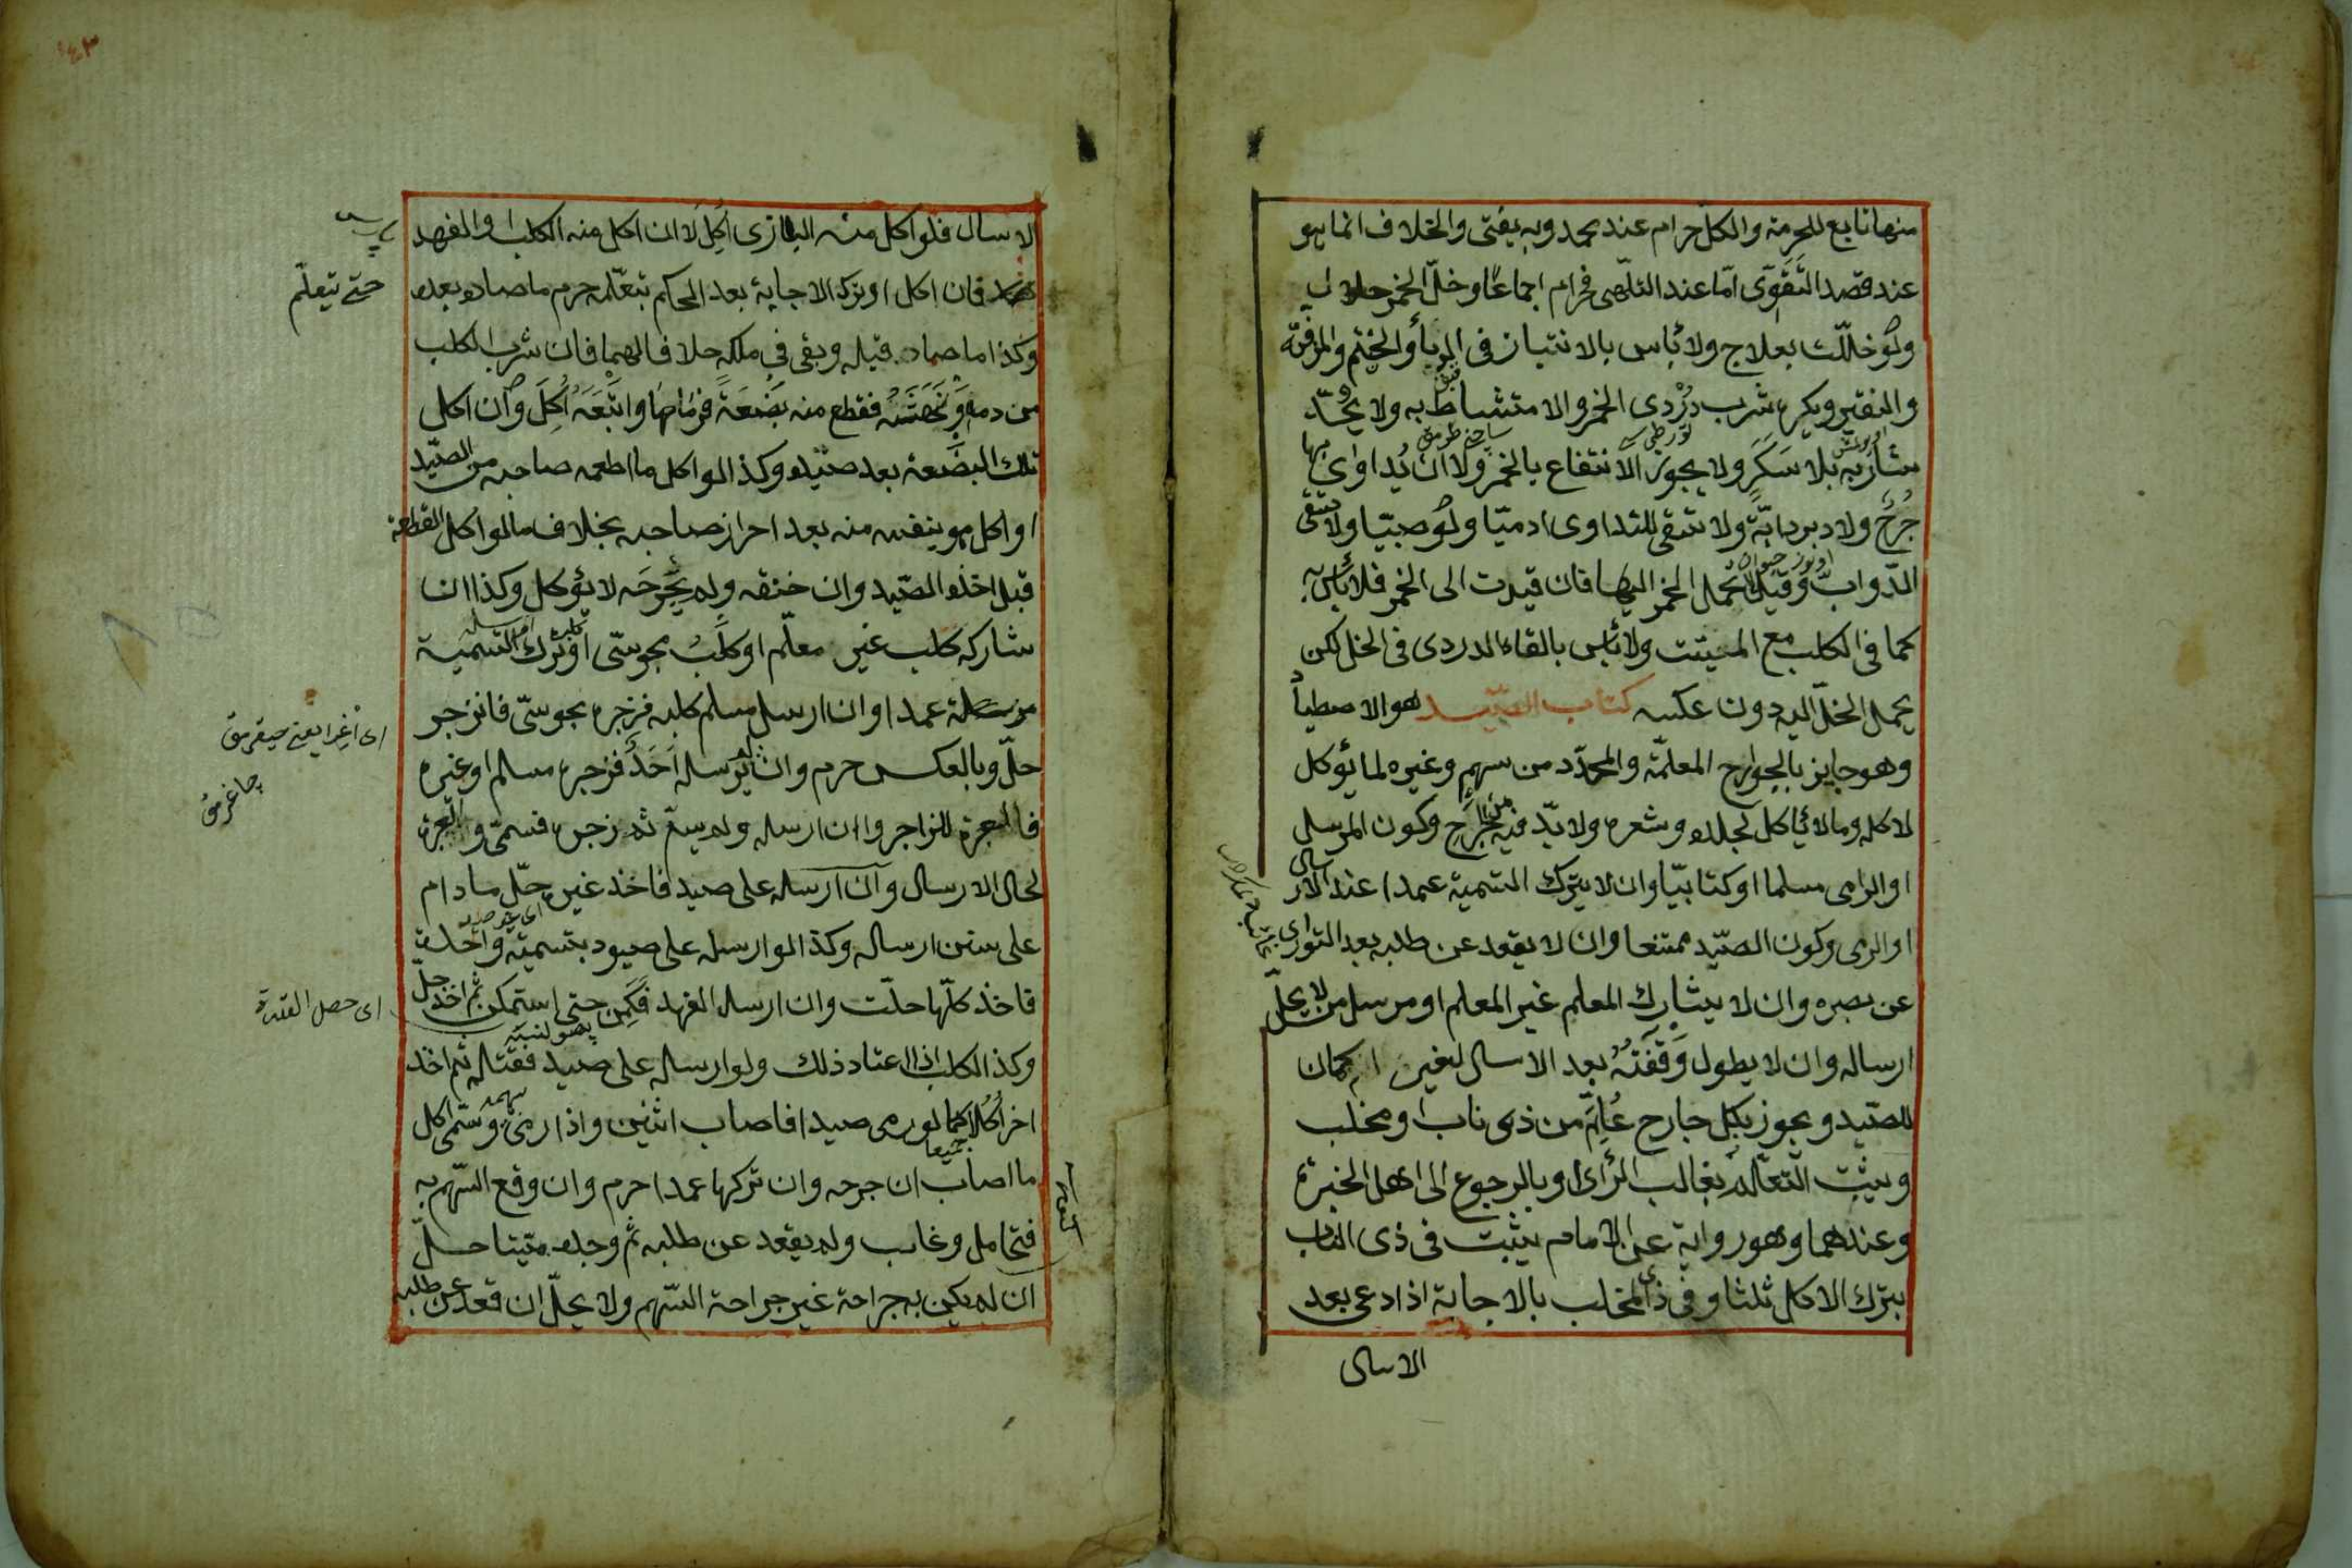 منها تابع للحرمة والكل حرام عند محمد وبه يفتى والخلاف انما هو
عند قصد التقوّى امّا عند التلهّى فحرام اجماعًا وخلّ الخمر حلال
ولو خللت بعلاج ولا بأس بالانتباز فى الدباء والحنتم والمزفّة
والنقير ويكره شرب دُرْدى الخمر والامتشاط به ولا يحدّ
شاربه بلا سَكَرٍ ولا يجوز الانتفاع بالخمر ولا ان يُداوى بها
جُرحٌ ولا دبر دابّة ولا تسقى للتداوى ادميّا ولو صبيّا ولا تسقى
الدّوابّ وقيل لا تحمل الخمر اليها فان قيدت الى الخمر فلا بأس به
كما فى الكلب مع الميتت ولا بأس بالقاء الدردى فى الخل لكن
يحمل الخلّ اليه دون عكسه كتاب الصّيد هو الاصطياد
وهو جايز بالجوارح المعلمّة والمحدّد من سهم وغيره لما يؤكل
لاكله وما لا يأكل لجلده وشعره ولا بدّ فيه من الجَرح وكون المرسل
او الرامى مسلما او كتابيّا وان لا يترك التسمية عمدا عند الارسال
او الرمى وكون الصّيد ممتنعا وان لا يقعد عن طلبه بعد التوارى
عن بصره وان لا يشارك المعلم غير المعلم او مرسل من لا يحلّ
ارساله وان لا يطول وَقْفَتُهُ بعد الاسال لغير اكمان
للصّيد ويجوز بكل جارح عُلِّمَ من ذى ناب او مخلب
ويثبت التعلّم بغالب الرأى او بالرجوع الى اهل الخبرة
وعندهما وهو رواية عن الامام يثبت فى ذى الناب
بترك الاكل ثلثا وفى ذى المخلب بالاجابة اذا دعى بعد
الاسال
الاسال فلو اكل منه البازى اُكِلَ لا ان اكل منه الكلب او الفهد
فان اكل او ترك الاجابة بعد الحكم بتعلّمه حرم ما صاده بعده
حتى يتعلّم
وكذا ما صاده قبله وبقى فى ملكه خلافا لهما فان شرب الكلب
من دمه او نَهَسَهُ فقطع منه بَضْعَةً فرماها واتبَعَهُ اُكِلَ وان اكل
تلك البضعة بعد صيده وكذا لو اكل ما اطعمه صاحبه من الصيّد
او اكل هو بنفسه منه بعد احراز صاحبه بخلاف ما لو اكل القطعة
قبل اخذه الصّيد وان خنقه ولم يَجْرَحَه لا يؤكل وكذا ان
شاركه كلب غير معلّم او كلبُ مجوسّى او ترك التسمية
مرسله عمدا وان ارسل مسلم كلبه فزجره مجوسّى فانزجر
اى اغرا يعنى
حلّ وبالعكس حرم وان لم يرسله اَحَدٌ فزجره مسلم او غيره
فالعبرة للزاجر وان ارسله ولم يسمّ ثم زجره فسمّى والعبرة
لحال الارسال وان ارسله على صيد فاخذ غيره حلّ ما دام
على سنن ارساله وكذا لو ارسله على صيود بتسمية واحدة
فاخذ كلّها حلّت وان ارسل الفهد فَكَمِنَ حتى استمكن ثم اخذ حلّ
اى حصل القدرة
وكذا الكلب اذا اعتاد ذلك ولو ارساله على صيد فقتاله ثم اخذ
اخر اُكلا كما لو رمى صيدا فاصاب اثنين واذا رمى سهمه وسمّى اكل
ما اصاب ان جرحه وان تركها عمدا حرم وان وقع السّهم به
فتحامل وغاب ولم يقعد عن طلبه ثم وجده ميتا حلّ
ان لم يكن به جراحة غير جراحة السّهم ولا يحلّ ان قعد عن طلبه